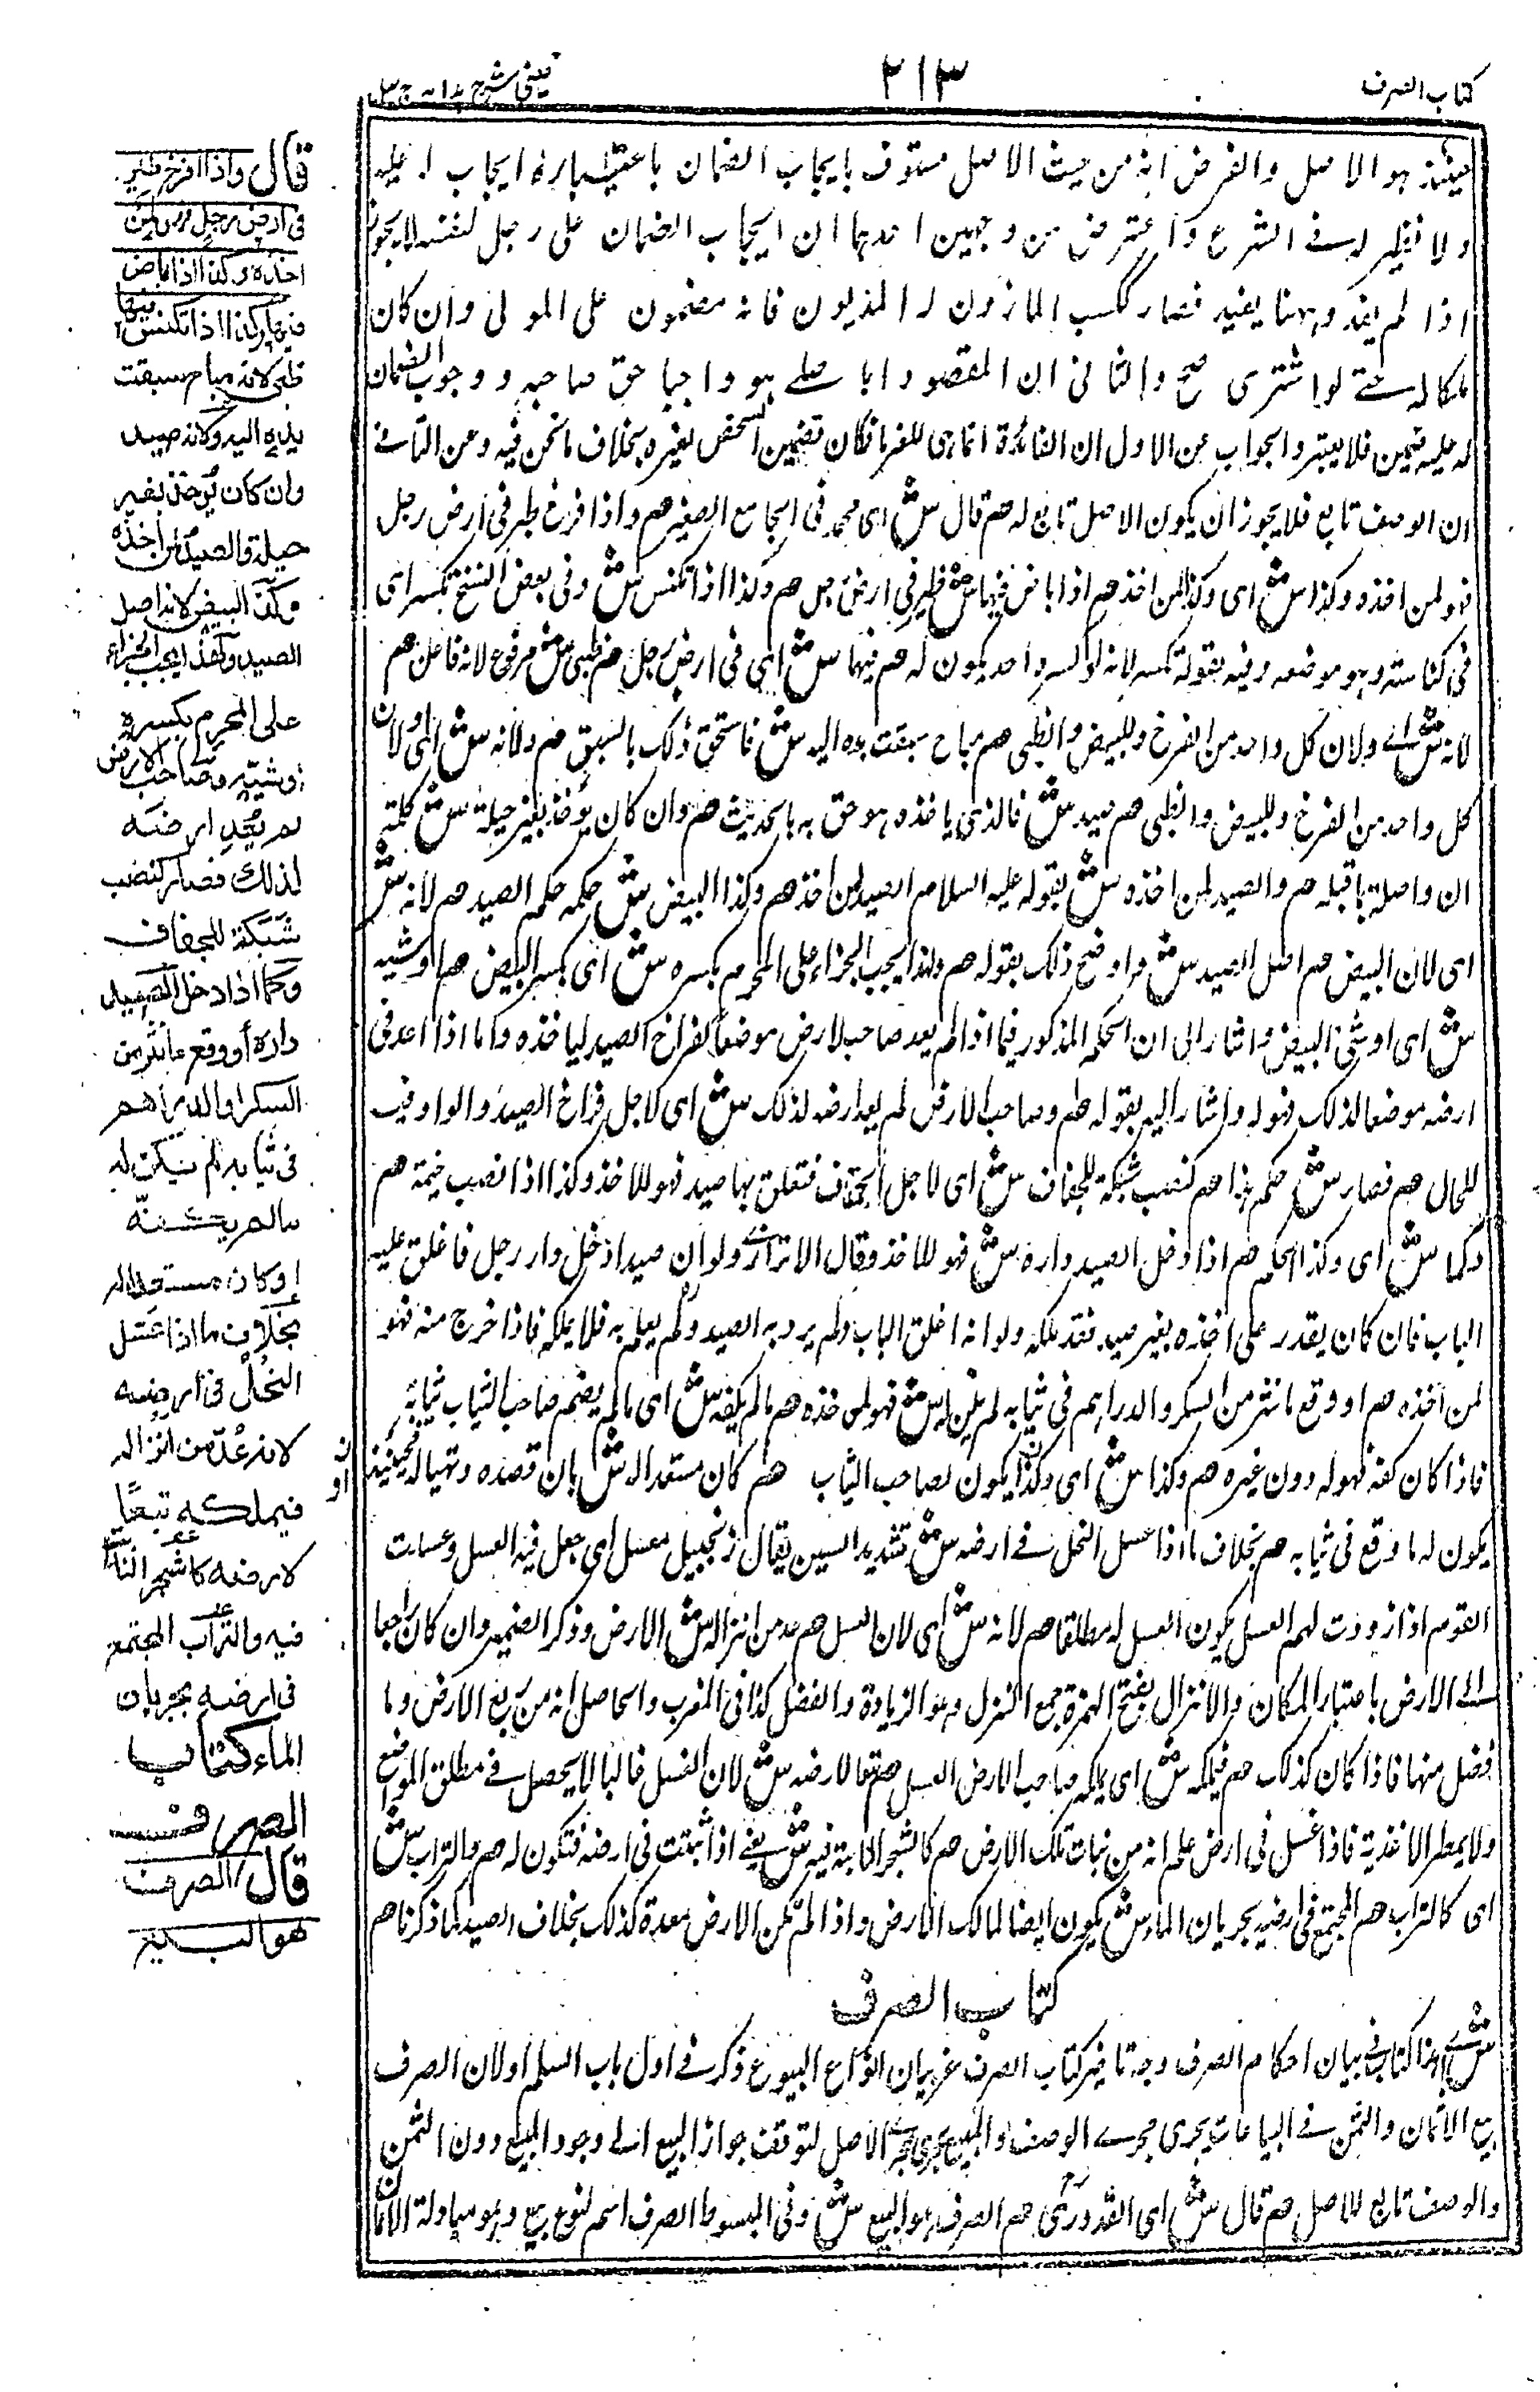 كتاب الصرف
٢١٣
عينى شرح هدايه ج س
حينئذ هو الاصل والفرض انه من حيث الاصل مستوف بايجاب الضمان باعتباره ايجاب له عليه
ولا نظير له في الشرع واعترض من وجهين احدهما ان ايجاب الضمان على رجل لنفسه لا يجوز
اذا لم يفد وههنا يفيد فصار ككسب الماذون له المديون فانه مضمون على المولى وان كان
ملكا له حتى لو اشترى صح والثاني ان المقصود الاصلى هو احياء حق صاحبه ووجوب الضمان
له عليه ضمن فلا يعتبر والجواب عن الاول ان الفائدة انما هى للغرماء فكان تضمين الشخص لغيره بخلاف ما نحن فيه وعن الثانى
ان الوصف تابع فلا يجوز ان يكون الاصل تابع له هم قال ش اى محمد فى الجامع الصغير هم واذا فرخ طير فى ارض رجل
فهو لمن اخذه وكذا ش اى وكذا لمن اخذ هم اذا باض فيها ش طير فى ارض رجل هم وكذا اذا تكنس ش وفى بعض النسخ تكسر اى
فى كناسته وهو موضعه وفيه بقوله تكسر لانه لو كسره احد يكون له هم فيها ش اى فى ارض رجل هم ظبى ش مرفوع لانه فاعل هم
لانه ش اى ولان كل واحد من الفرخ والبيض والظبى هم مباح سبقت يده اليه ش فاستحق ذلك بالسبق هم ولانه ش اى ولان
كل واحد من الفرخ والبيض والظبى هم صيد ش فالذى ياخذه هو حق به بالحديث هم وان كان يؤخذ بغير حيلة ش كلمة
ان واصلة بما قبله هم والصيد لمن اخذه ش بقوله عليه السلام الصيد لمن اخذ هم وكذا البيض ش حكمه حكم الصيد هم لانه ش
اى لان البيض هم اصل الصيد ش واوضح ذلك بقوله هم ولهذا يجب الجزاء على المحرم بكسره ش اى بكسر البيض هم او شيه
ش اى او شى البيض واشار الى ان الحكم المذكور فيما اذا لم يعد صاحب الارض موضعا لفراخ الصيد لياخذه واما اذا اعد فى
ارضه موضعا لذلك فهو له واشار اليه بقوله هم وصاحب الارض لم يعد ارضه لذلك ش اى لاجل فراخ الصيد والواو فيه
للحال هم فصار ش حكم هذا هم كنصب شبكة للجفاف ش اى لاجل الجفاف فتعلق بها صيد فهو للاخذ وكذا اذا نصب خيمة هم
وكما ش اى وكذا الحكم هم اذا دخل الصيد داره ش فهو للاخذ وقال الاترازى ولو ان صيدا دخل دار رجل فاغلق عليه
الباب فان كان يقدر على اخذه بغير صيد فقد ملكه ولو انه اغلق الباب ولم يرد به الصيد ولم يعلم به فلا يملكه فاذا خرج منه فهو
لمن اخذه هم او وقع ما نثر من السكر والدراهم فى ثيابه لم يكن له ش فهو لمن اخذه هم ما لم يكفه ش اى ما لم يضمه صاحب الثياب ثيابه
فاذا كان كفه فهو له دون غيره هم وكذا ش اى وكذا يكون لصاحب الثياب هم كان مستعدا له ش بان قصده وتهيا له فحينئذ
ن
او
يكون له ما وقع فى ثيابه هم بخلاف ما اذا عسل النحل فى ارضه ش بتشديد السين يقال زنجبيل معسل اى جعل فيه العسل وعسلت
القوم اذا زودت لهم العسل يكون العسل له مطلقا هم لانه ش اى لان العسل هم عد من انزاله ش الارض وذكر الضمير وان كان راجعا
الى الارض باعتبار المكان والانزال بفتح الهمزة جمع النزل وهو الزيادة والفضل كذا فى المغرب والحاصل انه من ريع الارض وما
فضل منها فاذا كان كذلك هم فيملكه ش اى يملكه صاحب الارض العسل هم تبعا لارضه ش لان العسل غالبا لا يحصل فى مطلق المواضع
ولا يمطر الاغذية فاذا عسل فى ارض علم انه من نبات تلك الارض هم كالشجر النابتة فيه ش يعنى اذا نبتت فى ارضه فتكون له هم والتراب ش
اى كالتراب هم المجتمع فى ارضه بجريان الماء ش يكون ايضا لمالك الارض واذا لم تكن الارض معدة كذلك بخلاف الصيد لما ذكرنا هم
كتاب الصرف
ش اى هذا كتاب فى بيان احكام الصرف وجه تاخير كتاب الصرف عن بيان انواع البيوع ذكر فى اول باب السلم او لان الصرف
بيع الاثمان والثمن فى البياعات يجرى مجرى الوصف والمبيع يجرى مجرى الاصل لتوقف جواز البيع الى وجود المبيع دون الثمن
والوصف تابع للاصل هم قال ش اى القدورى هم الصرف هو البيع ش وفى المبسوط الصرف اسم لنوع بيع وهو مبادلة الاثمان
قال واذا افرخ طير
فى ارض رجل فهو لمن
اخذه وكذا اذا باض
فيها وكذا اذا تكنس فيها
ظبى لانه مباح سبقت
يده اليه ولانه صيد
وان كان يؤخذ بغير
حيلة والصيد لمن اخذه
وكذا البيض لانه اصل
الصيد ولهذا يجب الجزاء
على المحرم بكسره
او شيه وصاحب الارض
لم يعد ارضه
لذلك فصار كنصب
شبكة للجفاف
وكما اذا دخل الصيد
داره أو وقع ما نثر من
السكر او الدراهم
فى ثيابه لم يكن له
ما لم يكفه
او كان مستعدا له
بخلاف ما اذا عسل
النحل فى ارضه
لانه عد من انزاله
فيملكه تبعا
لارضه كالشجر النابت
فيه والتراب المجتمع
فى ارضه بجريان
الماء كتاب
الصرف
قال الصرف
هو البيع